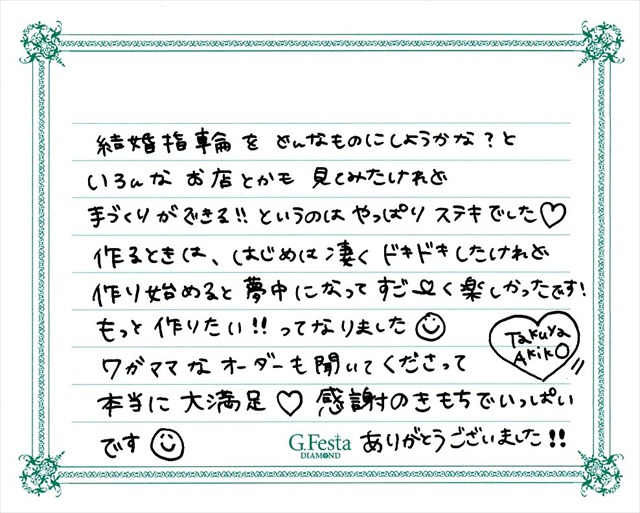 結婚指輪を どんなものにしようかな？と
いろんな お店とかも 見てみたけれど
手づくりができる!! というのは やっぱり ステキでした♡
作るときは、はじめは凄く ドキドキしたけれど
作り始めると 夢中になって すご〜く楽しかったです！
もっと 作りたい!! ってなりました☺
Takuya
Akiko
ワガママな オーダーも 聞いてくださって
本当に 大満足♡ 感謝のきもちでいっぱい
です☺
G.Festa
DIAMOND
ありがとうございました!!